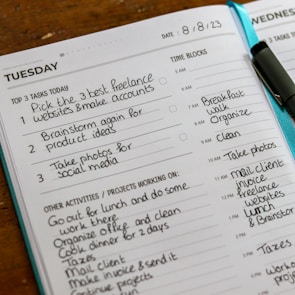 DATE: 8/8/23
TUESDAY
WEDNES
TOP 3 TASKS TODAY
TIME BLOCKS
1 Pick the 3 best freelance
websites & make accounts
2 Brainstorm again for
product ideas
3 Take photos for
social media
5 AM
6 AM
7 AM Breakfast
walk
8 AM Organize
9 AM clean
10 AM Take photos
11 AM mail client
invoice
12 PM freelance
websites
1 PM lunch
& Brainstorm
Taxes
OTHER ACTIVITIES / PROJECTS WORKING ON:
Go out for lunch and do some
work there
Organize office and clean
Cook dinner for 2 days
Taxes
Mail client
Make invoice & send it
Continue projects
Worko
proje